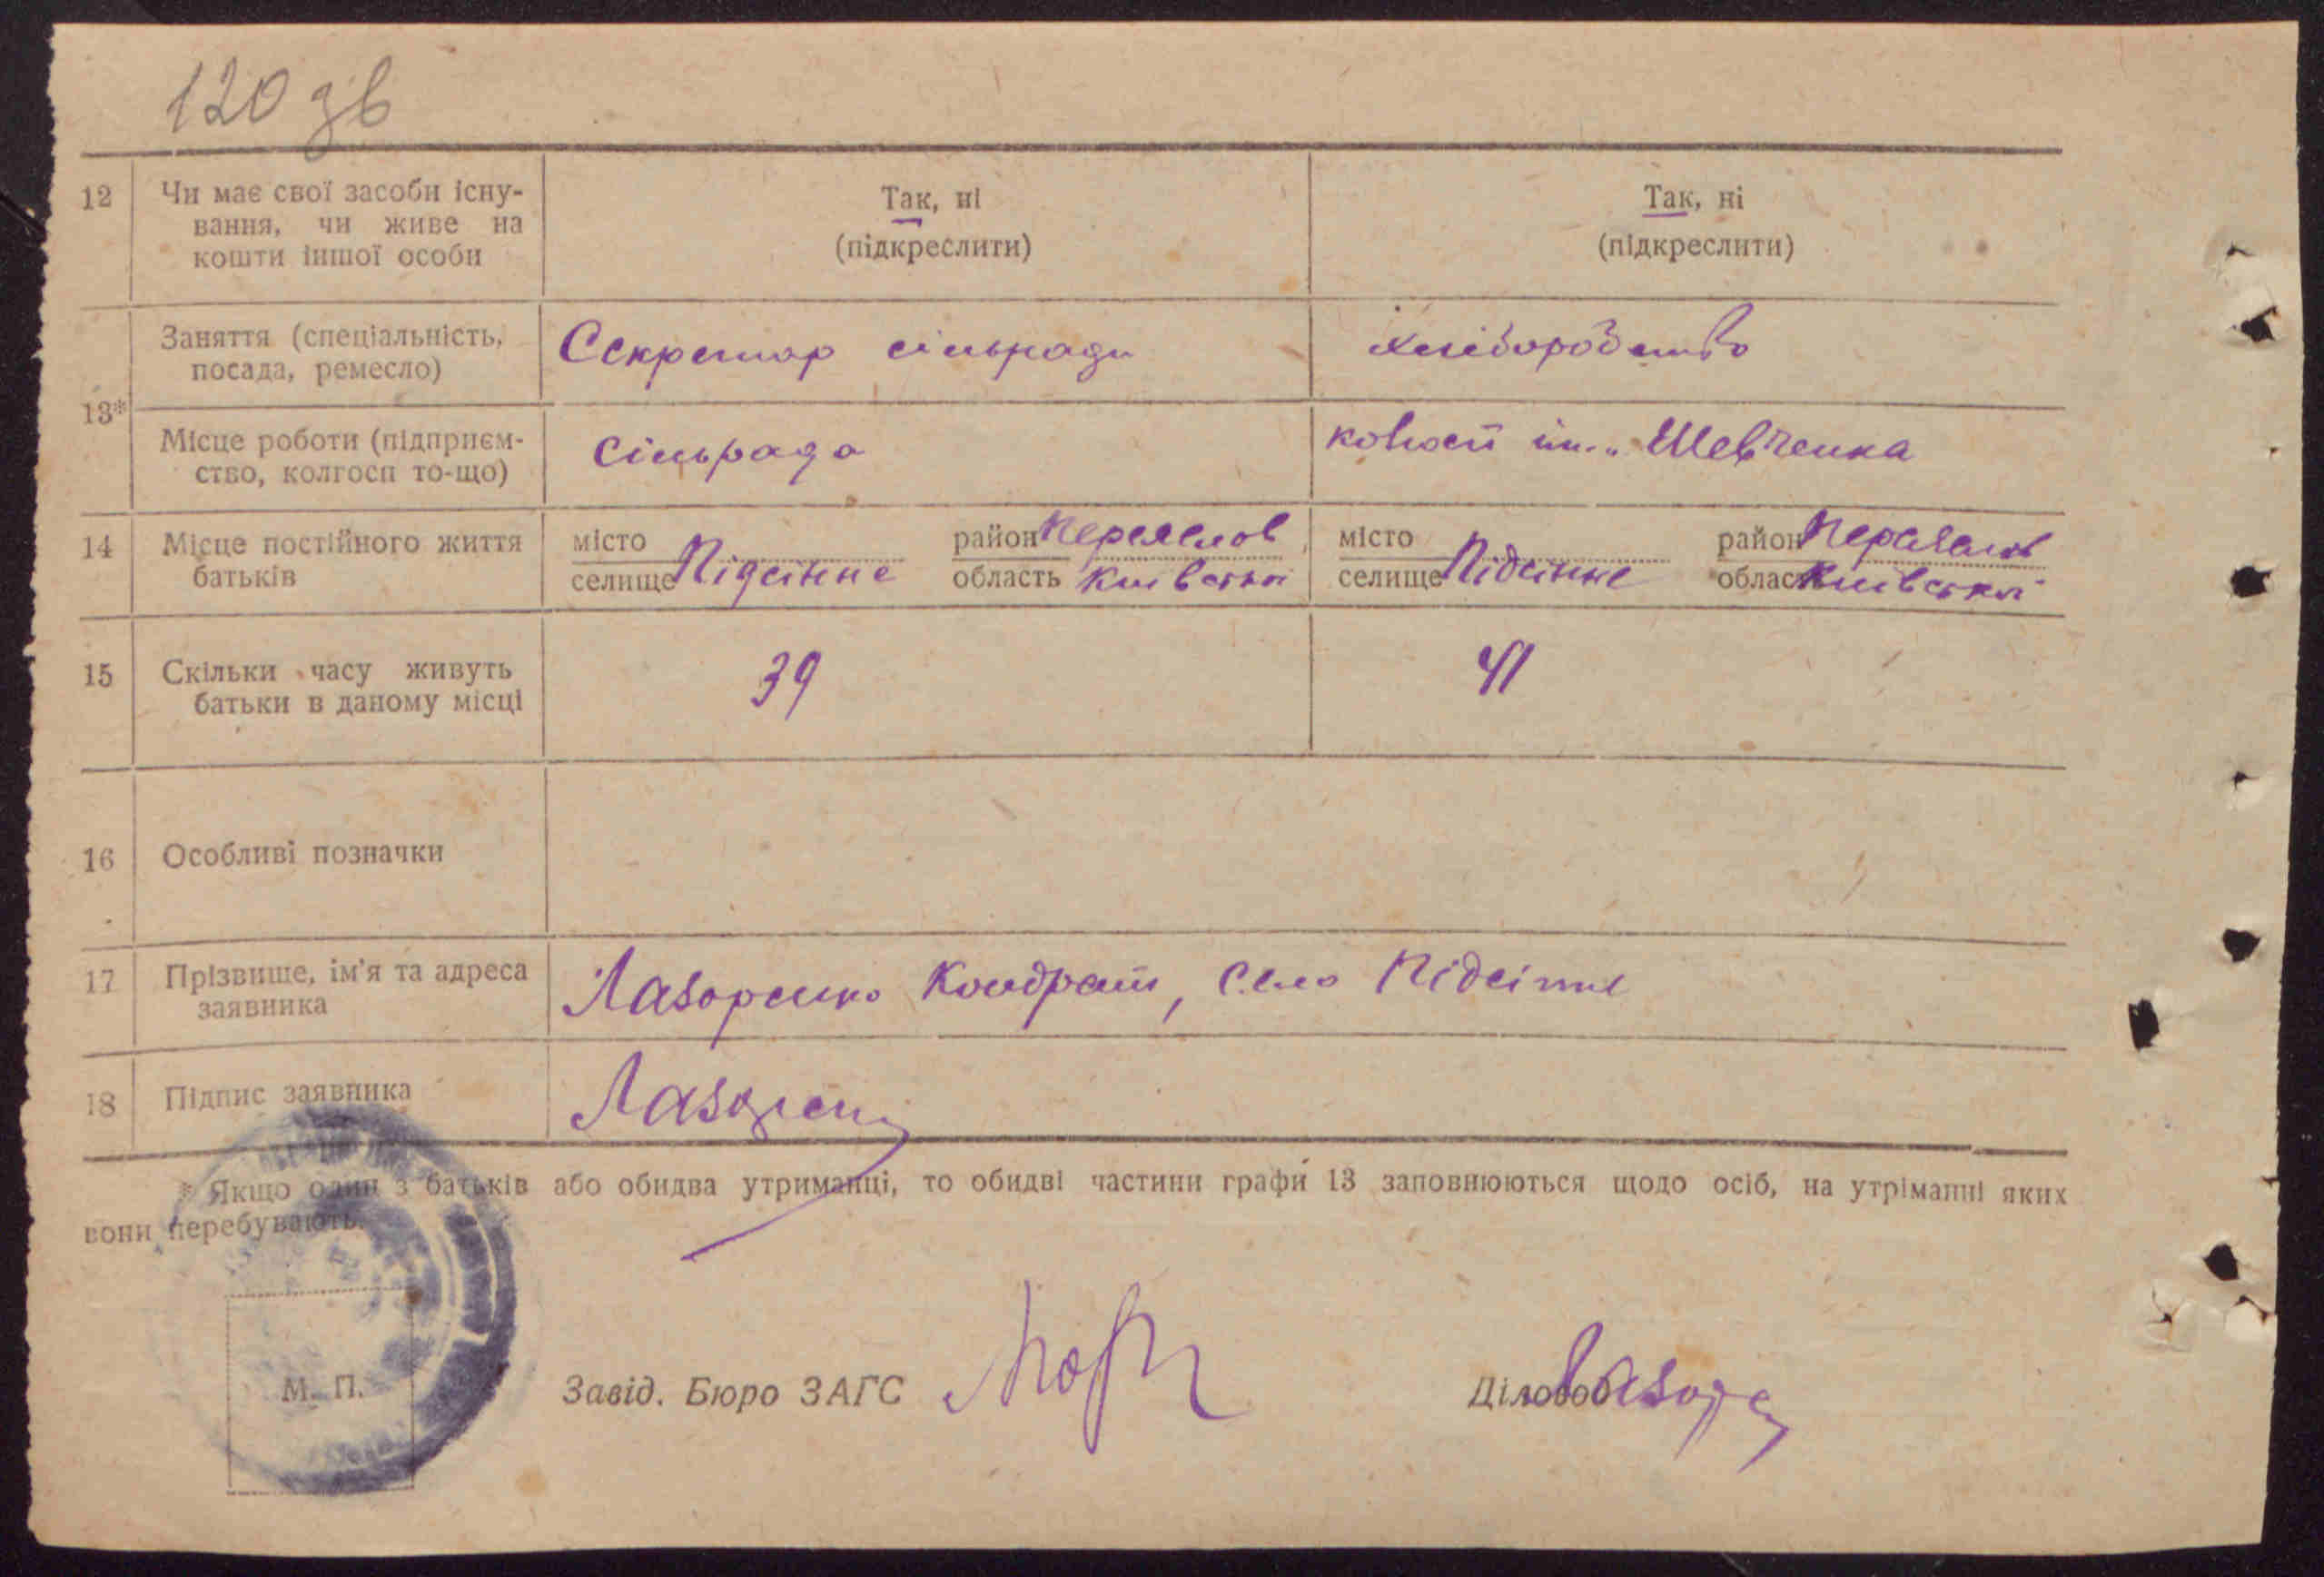 120 зв
12 Чи має свої засоби існу- Так, ні Так, ні
вання, чи живе на (підкреслити) (підкреслити)
кошти іншої особи
13* Заняття (спеціальність, Секретар сільради хліборобство
посада, ремесло)
Місце роботи (підприєм- Сільрада колгосп ім. „Шевченка
ство, колгосп то-що)
14 Місце постійного життя місто район Переяслов місто район Переяслов
батьків селище Підсінне область Київська селище Підсінне область Київська
15 Скільки часу живуть 39 41
батьки в даному місці
16 Особливі позначки
17 Прізвище, ім'я та адреса Лазоренко Кондрат, село Підсінне
заявника
18 Підпис заявника Лазорен
* Якщо один з батьків або обидва утриманці, то обидві частини графи 13 заповнюються щодо осіб, на утріманні яких
вони перебувають.
М. П. Завід. Бюро ЗАГС Діловод